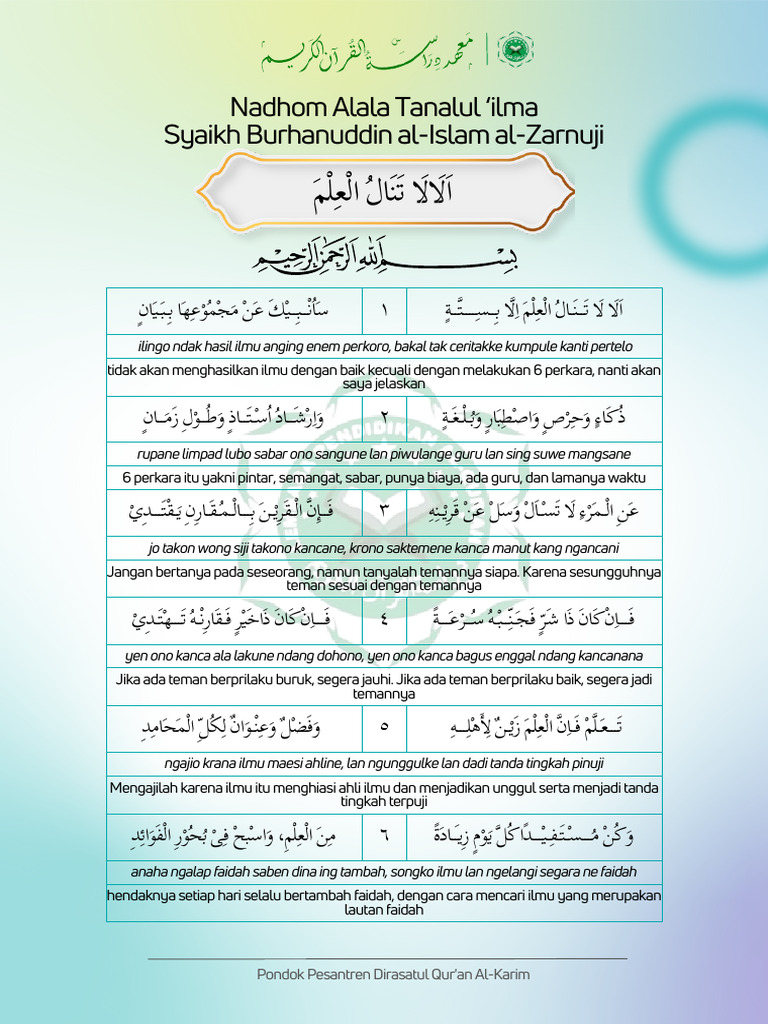 معهد دراسة القرآن الكريم
Nadhom Alala Tanalul ‘ilma
Syaikh Burhanuddin al-Islam al-Zarnuji
اَلَالَا تَنَالُ الْعِلْمَ
بِسْمِ اللهِ الرَّحْمٰنِ الرَّحِيْمِ
اَلَا لَا تَنَالُ الْعِلْمَ اِلَّا بِسِتَّةٍ ١ سَأُنْبِيْكَ عَنْ مَجْمُوْعِهَا بِبَيَانٍ
ilingo ndak hasil ilmu anging enem perkoro, bakal tak ceritakke kumpule kanti pertelo
tidak akan menghasilkan ilmu dengan baik kecuali dengan melakukan 6 perkara, nanti akan
saya jelaskan
ذُكَاءٍ وَحِرْصٍ وَاصْطِبَارٍ وَبُلْغَةٍ ٢ وَاِرْشَادُ اُسْتَاذٍ وَطُوْلِ زَمَانٍ
rupane limpad lubo sabar ono sangune lan piwulange guru lan sing suwe mangsane
6 perkara itu yakni pintar, semangat, sabar, punya biaya, ada guru, dan lamanya waktu
عَنِ الْمَرْءِ لَا تَسْأَلْ وَسَلْ عَنْ قَرِيْنِهِ ٣ فَإِنَّ الْقَرِيْنَ بِالْمُقَارِنِ يَقْتَدِيْ
jo takon wong siji takono kancane, krono saktemene kanca manut kang ngancani
Jangan bertanya pada seseorang, namun tanyalah temannya siapa. Karena sesungguhnya
teman sesuai dengan temannya
فَاِنْ كَانَ ذَا شَرٍّ فَجَنِّبْهُ سُرْعَةً ٤ فَاِنْ كَانَ ذَاخَيْرٍ فَقَارِنْهُ تَهْتَدِيْ
yen ono kanca ala lakune ndang dohono, yen ono kanca bagus enggal ndang kancanana
Jika ada teman berprilaku buruk, segera jauhi. Jika ada teman berprilaku baik, segera jadi
temannya
تَعَلَّمْ فَاِنَّ الْعِلْمَ زَيْنٌ لِأَهْلِهِ ٥ وَفَضْلٌ وَعِنْوَانٌ لِكُلِّ الْمَحَامِدِ
ngajio krana ilmu maesi ahline, lan ngunggulke lan dadi tanda tingkah pinuji
Mengajilah karena ilmu itu menghiasi ahli ilmu dan menjadikan unggul serta menjadi tanda
tingkah terpuji
وَكُنْ مُسْتَفِيْدًا كُلَّ يَوْمٍ زِيَادَةً ٦ مِنَ الْعِلْمِ، وَاسْبَحْ فِيْ بُحُوْرِ الْفَوَائِدِ
anaha ngalap faidah saben dina ing tambah, songko ilmu lan ngelangi segara ne faidah
hendaknya setiap hari selalu bertambah faidah, dengan cara mencari ilmu yang merupakan
lautan faidah
Pondok Pesantren Dirasatul Qur'an Al-Karim